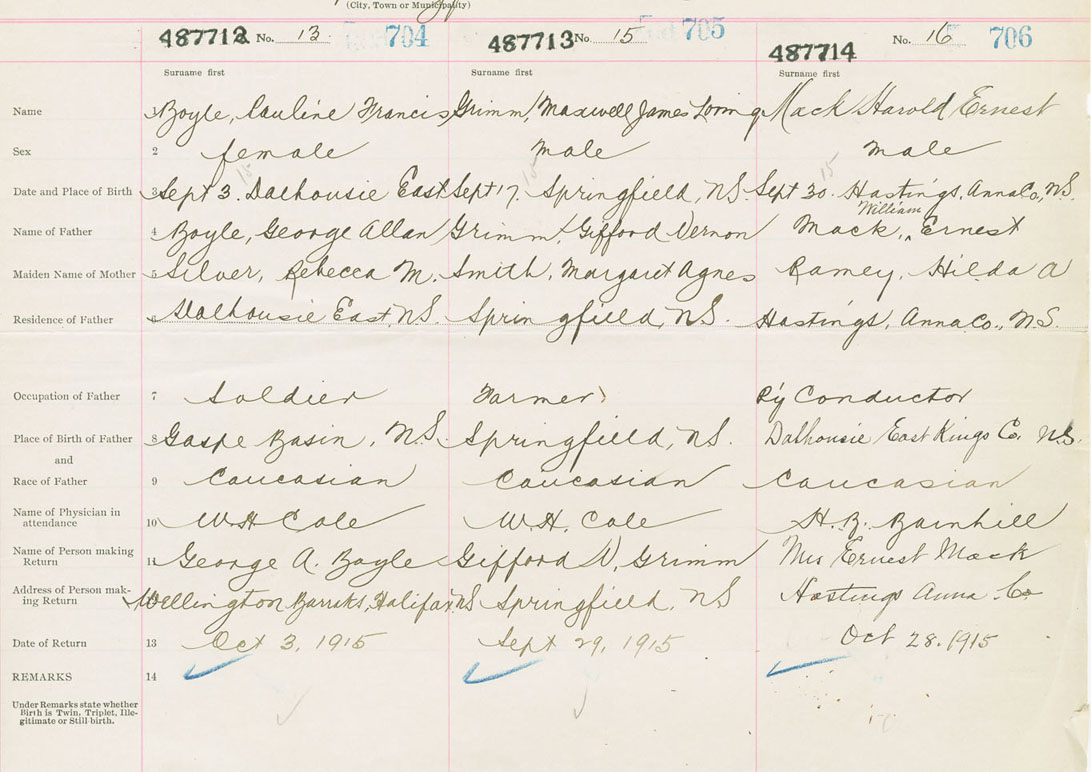 (City, Town or Municipality)
487712 No. 13 704 487713 No. 15 705 487714 No. 16 706
Surname first Surname first Surname first
Name 1 Boyle, Pauline Francis Grimm, Maxwell James Loring Mack Harold Ernest
Sex 2 female Male Male
15 15 15
Date and Place of Birth 3 Sept 3. Dalhousie East Sept 17. Springfield, NS. Sept 30. Hastings, Anna Co, N.S.
William
Name of Father 4 Boyle, George Allan Grimm, Gifford Vernon Mack, ^ Ernest
Maiden Name of Mother 5 Silver, Rebecca M. Smith, Margaret Agnes Ramey, Hilda A
Residence of Father 6 Dalhousie East, N.S. Springfield, N.S. Hastings, Anna Co., N.S.
Occupation of Father 7 Soldier Farmer Ry Conductor
Place of Birth of Father 8 Gaspe Basin, N.S. Springfield, N.S. Dalhousie East Kings Co. N.S.
and
Race of Father 9 Caucasian Caucasian Caucasian
Name of Physician in
attendance 10 W H Cole W. H. Cole H. B. Barnhill
Name of Person making
Return 11 George A. Boyle Gifford V. Grimm Mrs Ernest Mack
Address of Person mak-
ing Return Wellington Barraks, Halifax NS Springfield, NS Hastings Anna Co
Date of Return 13 Oct 3, 1915 Sept 29, 1915 Oct 28. 1915
REMARKS 14
Under Remarks state whether
Birth is Twin, Triplet, Ille-
gitimate or Still birth.